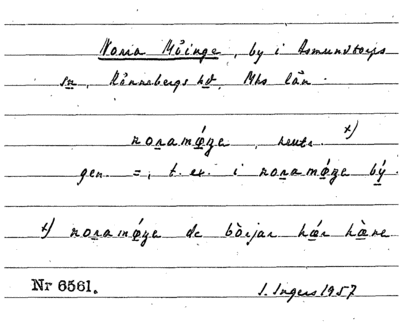 Norra Möinge, by i Asmundtorps
sn, Rönnebergs hd, Mhs län.
noramǿŋe, neutr. x)
gen. =, t. ex. i noramǿŋe bý.
x) noramǿŋe de bòijar hǽr hæ̀ne
Nr 6561.
I. Ingers 1957